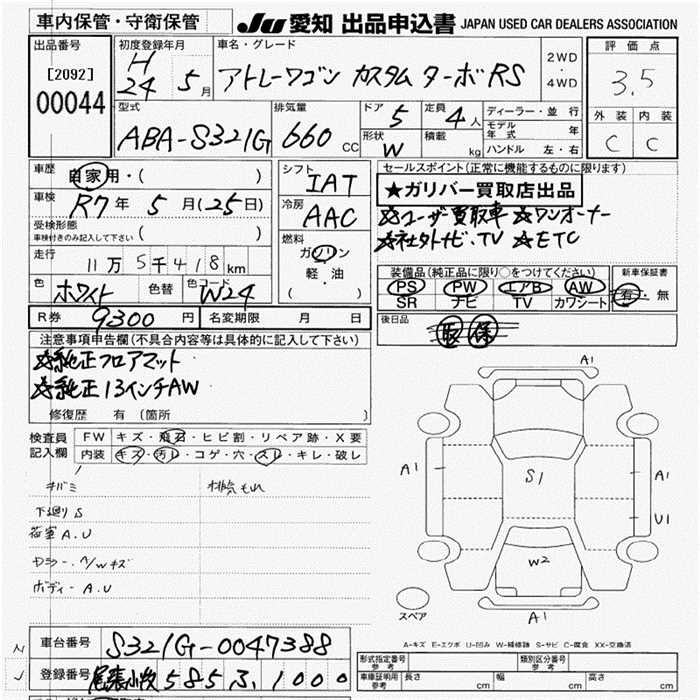 車内保管・守衛保管 JU 愛知 出品申込書 JAPAN USED CAR DEALERS ASSOCIATION
出品番号 初度登録年月 車名・グレード 2WD・4WD 評価点
[2092] 00044 H 24 5月 アトレーワゴン カスタム ターボRS 3.5
型式 排気量 ドア 5 定員 4人 ディーラー・並行 外装 内装
ABA-S321G 660CC 形状 W 積載 kg モデル年式 年 C C
ハンドル 左・右
車歴 自家用・( ) シフト IAT セールスポイント(正常に機能するものに限ります)
車検 R7年 5月(25日) 冷房 AAC ★ガリバー買取店出品
受検形態 車検付きのみ記入して下さい ( ) ☆ユーザー買取車 ☆ワンオーナー
燃料 ガソリン 軽・油 ( ) ☆社外ナビ.TV ☆ETC
走行 11万5千418km
色 ホワイト 色替 色コード W24
装備品(純正品に限り○をつけてください) 新車保証書
PS PW エアB AW 有・無
SR ナビ TV カワシート
R券 9300円 名変期限 月 日 後日品 取 保
注意事項申告欄(不具合内容等は具体的に記入して下さい)
☆純正フロアマット
☆純正13インチAW
修復歴 有(箇所 )
検査員記入欄 FW キズ・飛石・ヒビ割・リペア跡・X要
内装 キズ・汚レ・コゲ・穴・スレ・キレ・破レ
キバミ
下廻りS
荷室A.U
A/Wキズ
ボディーA.U
A1
A1 S1 A1
U1
W2
A1
スペア
A-キズ E-エクボ U-凹み W-補修跡 S-サビ C-腐食 XX-交換済
N 車台番号 S321G-0047388
J 登録番号 尾張小牧 585 ふ 1000
形式指定番号 参考 類別区分番号 参考
車庫証明用 参考 長さ cm 幅 cm 高さ cm